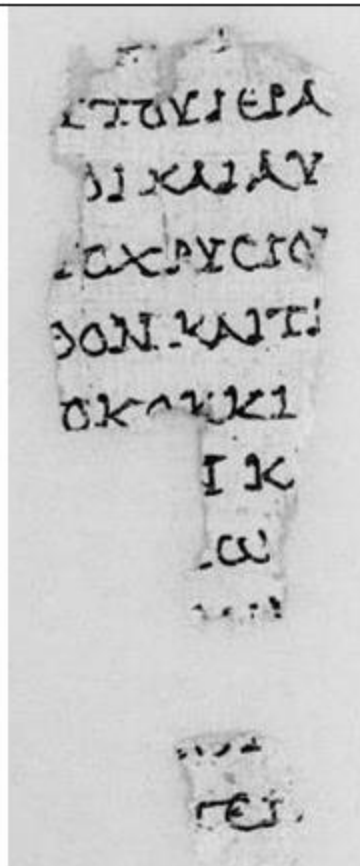 ΤΟΥΙΕΡΑ
ΟΙΚΑΙΑΥ
ΤΟΧΡΥϹΙΟ
ΘΟΝΚΑΙΤΗ
ΟΚΟΚΚΙ
ΙΚ
Ω
ΤΕΙ